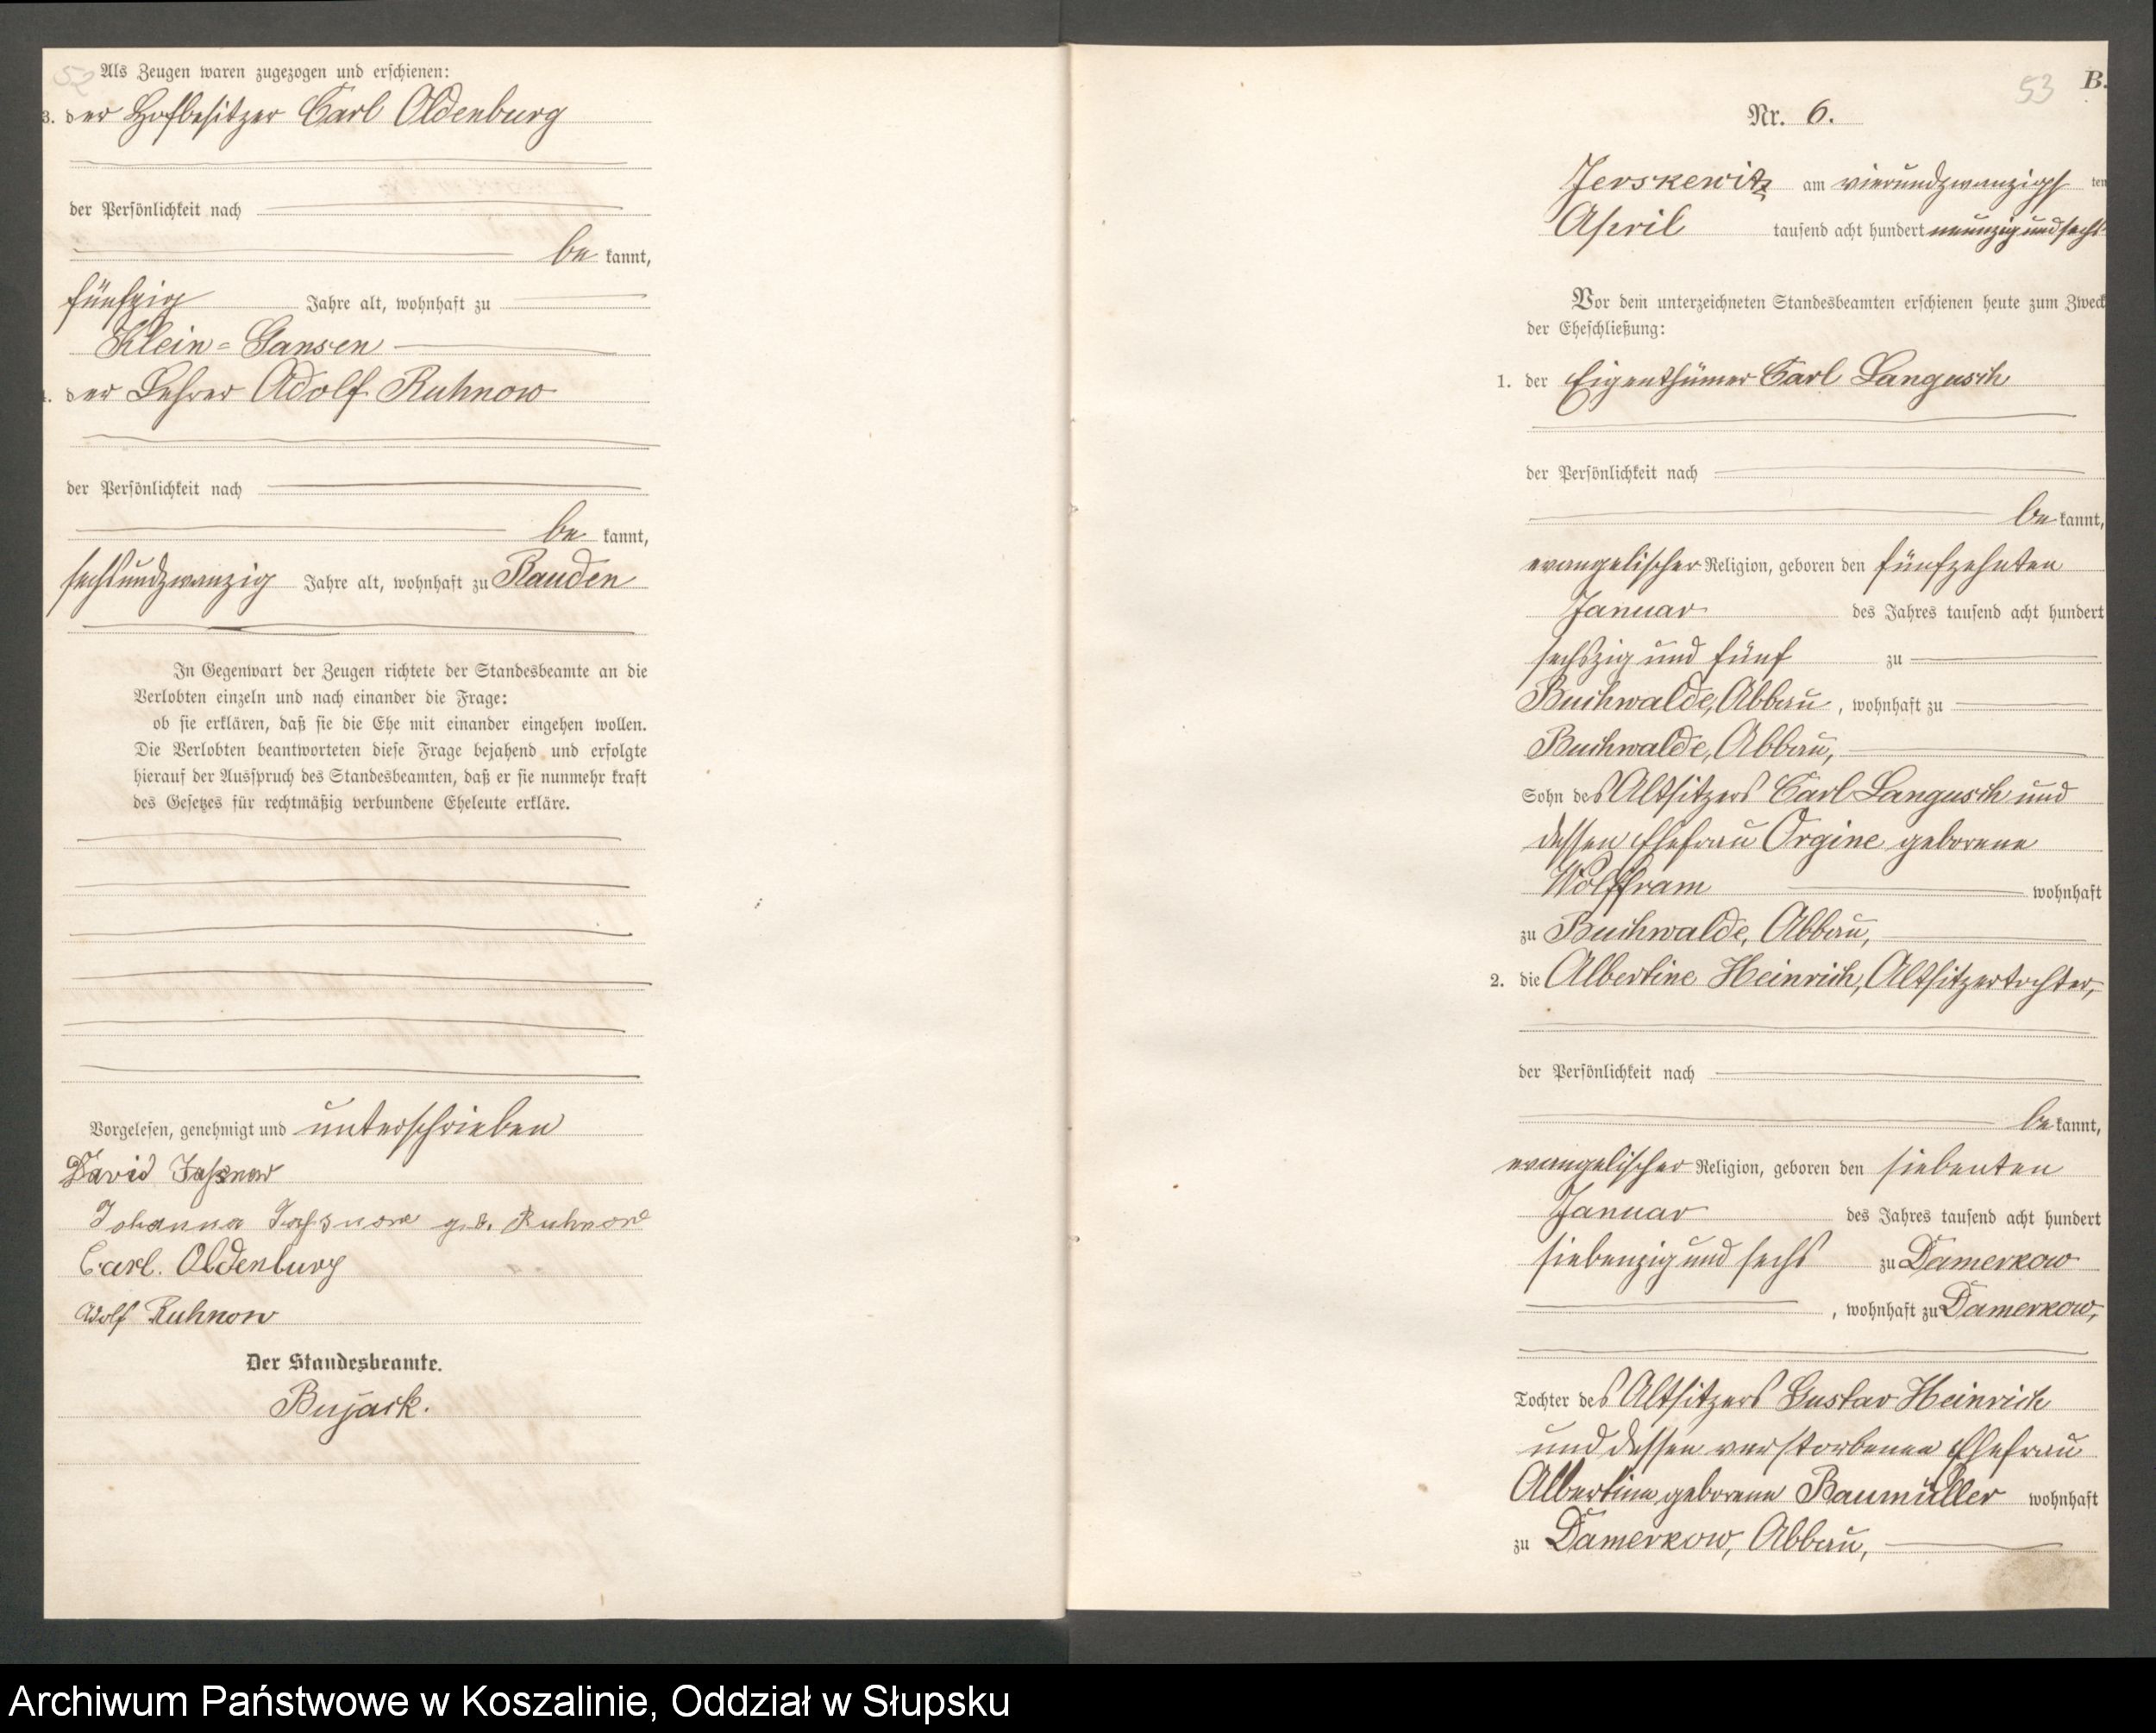 52
Als Zeugen waren zugezogen und erschienen:
3. der Hofbesitzer Carl Oldenburg
der Persönlichkeit nach
be kannt,
fünfzig Jahre alt, wohnhaft zu
Klein=Gansen
der Lehrer Adolf Ruhnow
der Persönlichkeit nach
be kannt,
sechsundzwanzig Jahre alt, wohnhaft zu Rauden
In Gegenwart der Zeugen richtete der Standesbeamte an die
Verlobten einzeln und nach einander die Frage:
ob sie erklären, daß sie die Ehe mit einander eingehen wollen.
Die Verlobten beantworteten diese Frage bejahend und erfolgte
hierauf der Ausspruch des Standesbeamten, daß er sie nunmehr kraft
des Gesetzes für rechtmäßig verbundene Eheleute erkläre.
Vorgelesen, genehmigt und unterschrieben
David
Johanna geb. Ruhnow
Carl. Oldenburg
Adolf Ruhnow
Der Standesbeamte.
Bujack.
53
B.
Nr. 6.
Jerskewitz am vierundzwanzigsten
April tausend acht hundert neunzig und sechs
Vor dem unterzeichneten Standesbeamten erschienen heute zum Zweck
der Eheschließung:
1. der Eigenthümer Carl Langusch
der Persönlichkeit nach
be kannt,
evangelischer Religion, geboren den fünfzehnten
Januar des Jahres tausend acht hundert
sechszig und fünf zu
Buchwalde, Abbau, wohnhaft zu
Buchwalde, Abbau,
Sohn des Altsitzers Carl Langusch und
dessen Ehefrau Orgine geborene
Wolffram wohnhaft
zu Buchwalde, Abbau,
2. die Albertine Heinrich, Altsitzertochter,
der Persönlichkeit nach
be kannt,
evangelischer Religion, geboren den siebenten
Januar des Jahres tausend acht hundert
siebenzig und sechs zu Damerkow
, wohnhaft zu Damerkow,
Tochter des Altsitzers Gustav Heinrich
und dessen verstorbenen Ehefrau
Albertine geborene Baumüller wohnhaft
zu Damerkow, Abbau,
Archiwum Państwowe w Koszalinie, Oddział w Słupsku